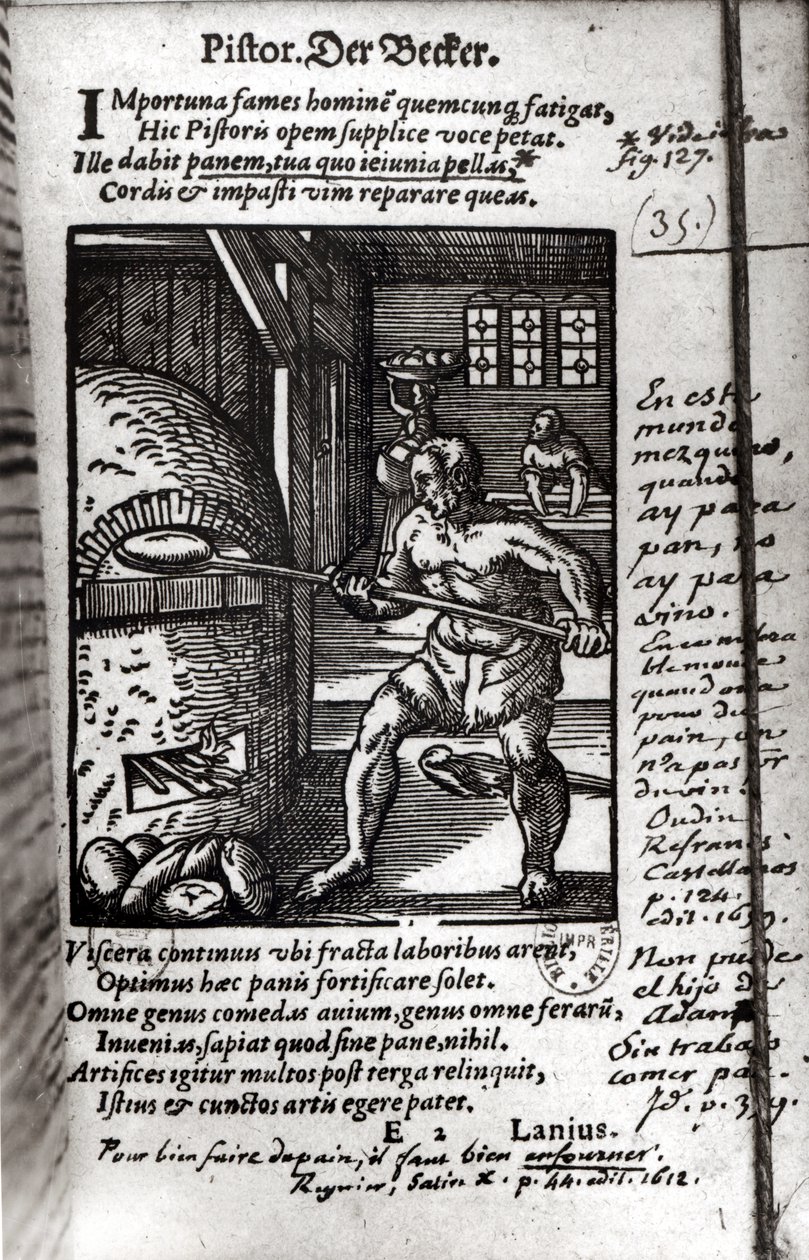 Piſtor. Der Becker.
IMportuna fames hominē quemcunq; fatigat,
Hic Piſtoris opem ſupplice voce petat.
Ille dabit panem, tua quo ieiunia pellas,*
Cordis & impaſti vim reparare queas.
* Vide
fig. 127.
(35.)
En este
mundo
mezquino,
quando
ay para
pan, no
ay para
vino.
En ce miſera
ble monde
quand on a
pour du
pain, on
n'a pas pr
du vin.
Oudin
Refranes
Castellanos
p. 124.
edit. 1659.
Non puede
el hijo de
Adam
Sin trabajo
comer pan.
Id. p.
Viſcera continuis vbi fracta laboribus arent,
Optimus hæc panis fortificare ſolet.
Omne genus comedas auium, genus omne ferarū,
Inuenias, ſapiat quod ſine pane, nihil.
Artifices igitur multos poſt terga relinquit,
Iſtius & cunctos artis egere patet.
E 2 Lanius.
Pour bien faire du pain, il faut bien enfourner.
Regnier, Satir X. p. 44. edit. 1612.
IMPR